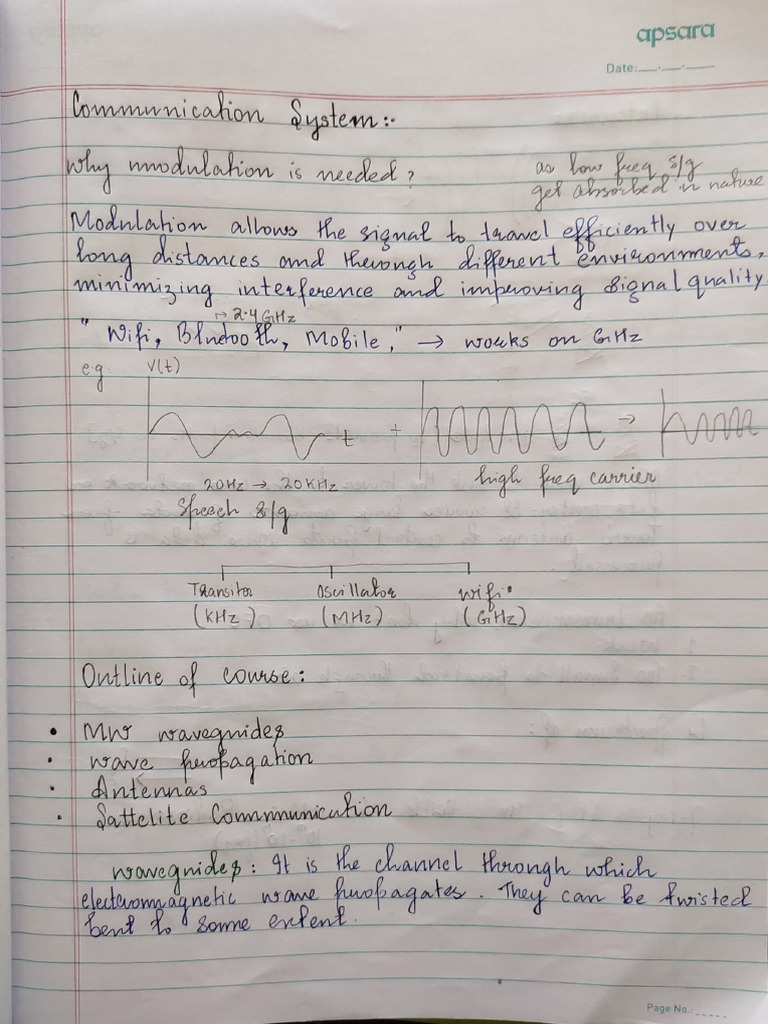 apsara
Date:
Communication System:-
Why modulation is needed?
as low freq s/g
get absorbed in nature
Modulation allows the signal to travel efficiently over
long distances and through different environments,
minimizing interference and improving signal quality
↳ 2.4 GHz
" Wifi, Bluetooth, Mobile," → works on GHz
e.g. V(t)
t + →
20Hz → 20KHz
high freq carrier
Speech s/g
Transitor Oscillator wifi
(KHz) (MHz) (GHz)
Outline of course:
• MW waveguides
• wave propagation
• Antennas
• Sattelite Communication
waveguides: It is the channel through which
electromagnetic wave propagates. They can be twisted
bent to some extent.
Page No.: